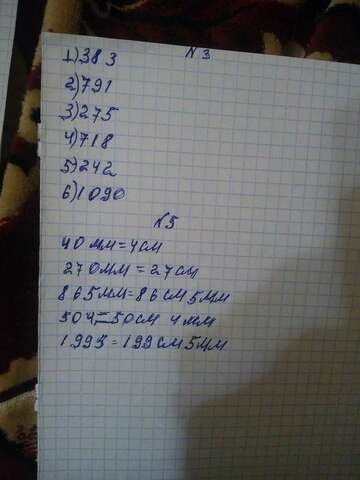 N 3
1) 383
2) 791
3) 275
4) 718
5) 242
6) 1090
N 5
40 мм = 4 см
270 мм = 27 см
865 мм = 86 см 5 мм
504 = 50 см 4 мм
1995 = 199 см 5 мм